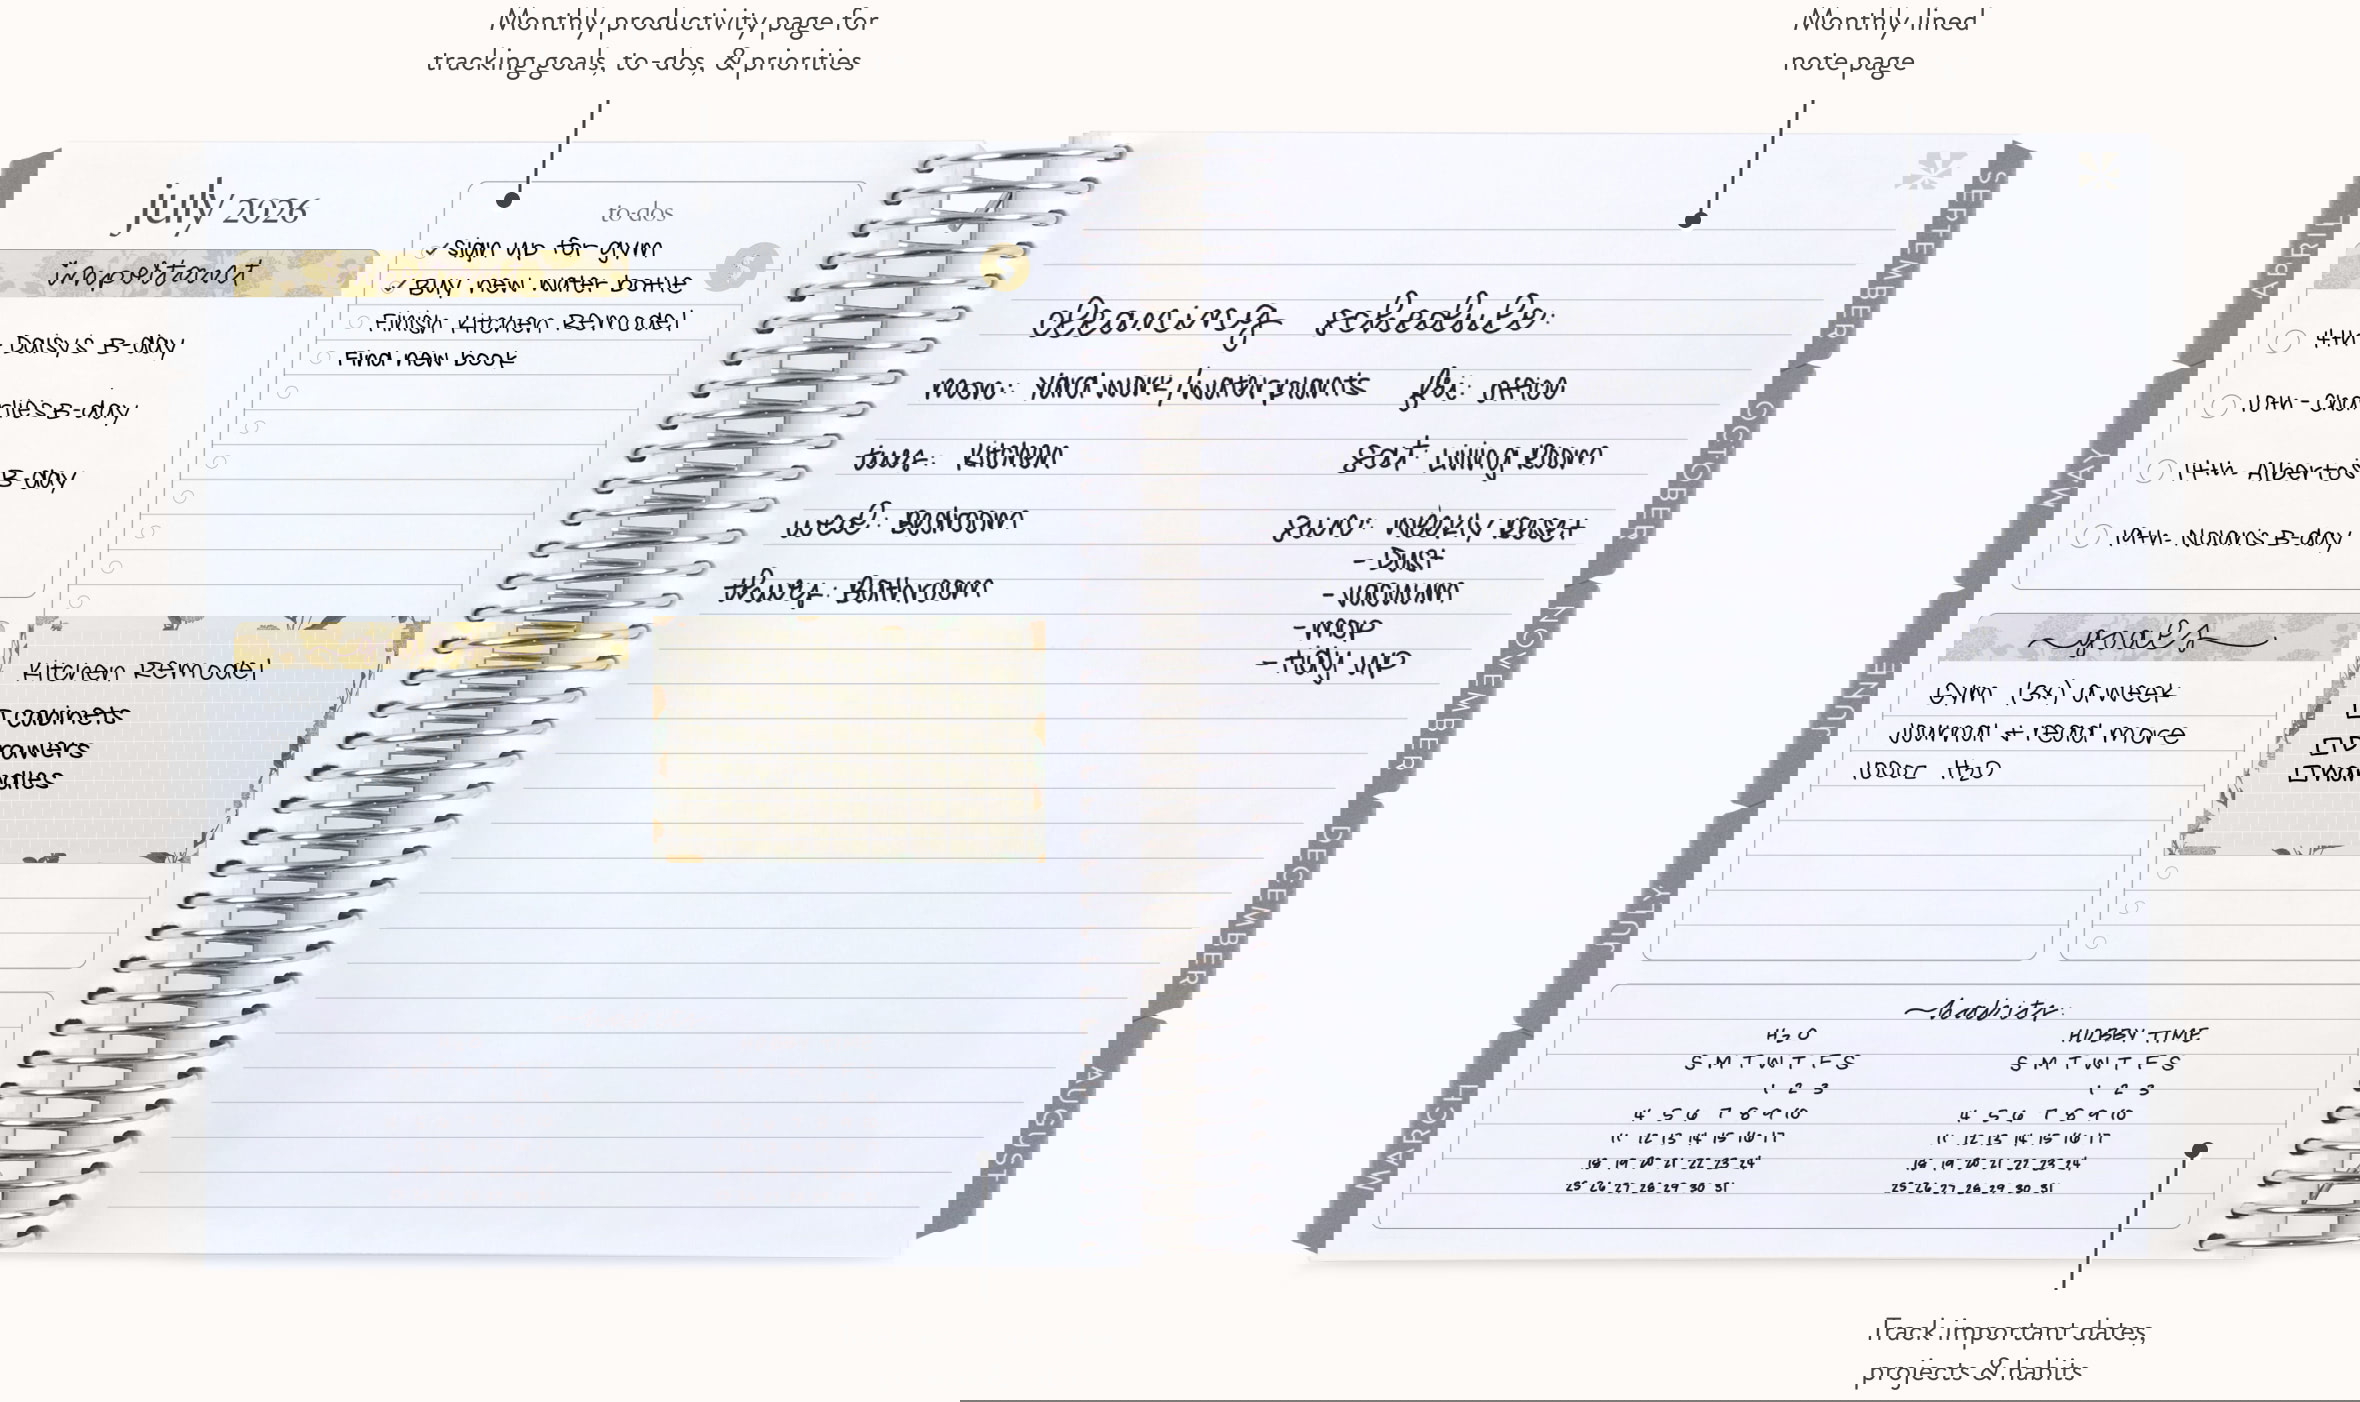 Monthly productivity page for
tracking goals, to-dos, & priorities
Monthly lined
note page
july 2026
important
4th- Daisy's B-day
10th- Charlie's B-day
14th- Alberto's B-day
19th- Nolan's B-day
to-dos
Sign up for gym
Buy new water bottle
Finish Kitchen Remodel
Find new book
goals
Gym (3x) a week
Journal + read more
100oz H2O
Kitchen Remodel
Cabinets
Drawers
Handles
habits
H2O
S M T W T F S
1 2 3
4 5 6 7 8 9 10
11 12 13 14 15 16 17
18 19 20 21 22 23 24
25 26 27 28 29 30 31
HUBBY TIME
S M T W T F S
1 2 3
4 5 6 7 8 9 10
11 12 13 14 15 16 17
18 19 20 21 22 23 24
25 26 27 28 29 30 31
cleaning schedule:
mon: Yard work/water plants
tues: Kitchen
wed: Bedroom
thurs: Bathroom
fri: office
sat: Living Room
sun: Weekly Reset
- Dust
- vacuum
- mop
- tidy up
MARCH
APRIL
MAY
JUNE
JULY
AUGUST
SEPTEMBER
OCTOBER
NOVEMBER
DECEMBER
Track important dates,
projects & habits